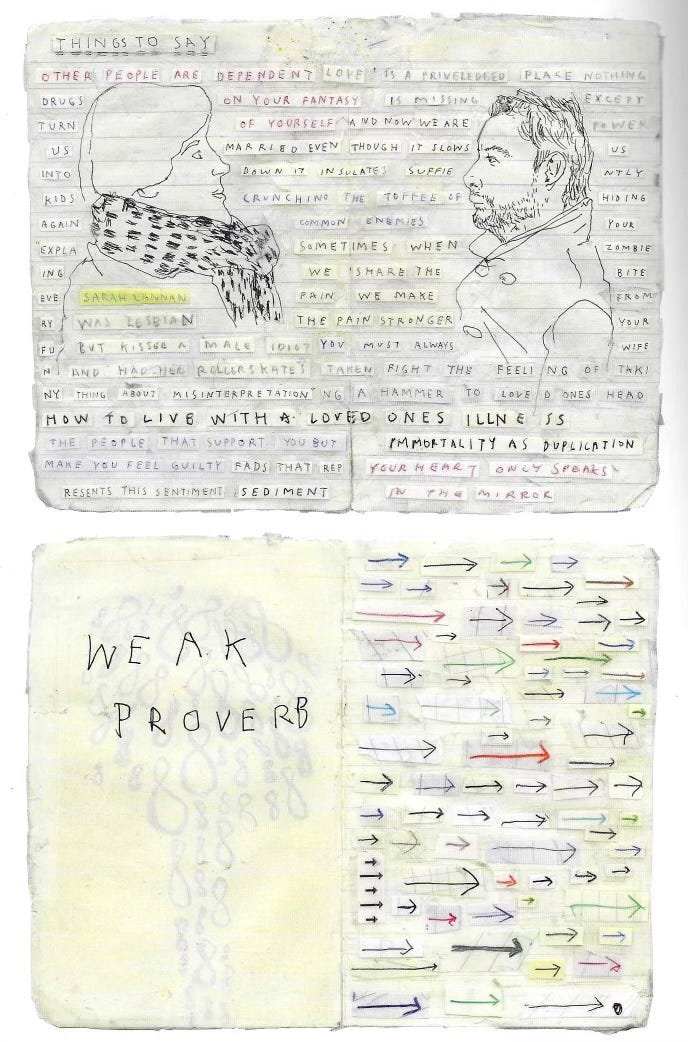 THINGS TO SAY
OTHER PEOPLE ARE DEPENDENT LOVE IS A PRIVELEDGED PLACE NOTHING
DRUGS ON YOUR FANTASY IS MISSING EXCEPT
TURN OF YOURSELF AND NOW WE ARE POWER
US MARRIED EVEN THOUGH IT SLOWS US
INTO DOWN IT INSULATES SUFFIE NTLY
KIDS CRUNCHING THE TOFFEE OF HIDING
AGAIN COMMON ENEMIES YOUR
"EXPLA SOMETIMES WHEN ZOMBIE
ING WE SHARE THE BITE
EVE SARAH LANNAN PAIN WE MAKE FROM
RY WAS LESBIAN THE PAIN STRONGER YOUR
FU BUT KISSED A MALE IDIOT YOU MUST ALWAYS WIFE
N AND HAD HER ROLLERSKATES TAKEN FIGHT THE FEELING OF TAKI
NY THING ABOUT MISINTERPRETATION" NG A HAMMER TO LOVED ONES HEAD
HOW TO LIVE WITH A LOVED ONES ILLNESS
THE PEOPLE THAT SUPPORT YOU BUT IMMORTALITY AS DUPLICATION
MAKE YOU FEEL GUILTY FADS THAT REP YOUR HEART ONLY SPEAKS
RESENTS THIS SENTIMENT SEDIMENT IN THE MIRROR
WEAK
PROVERB